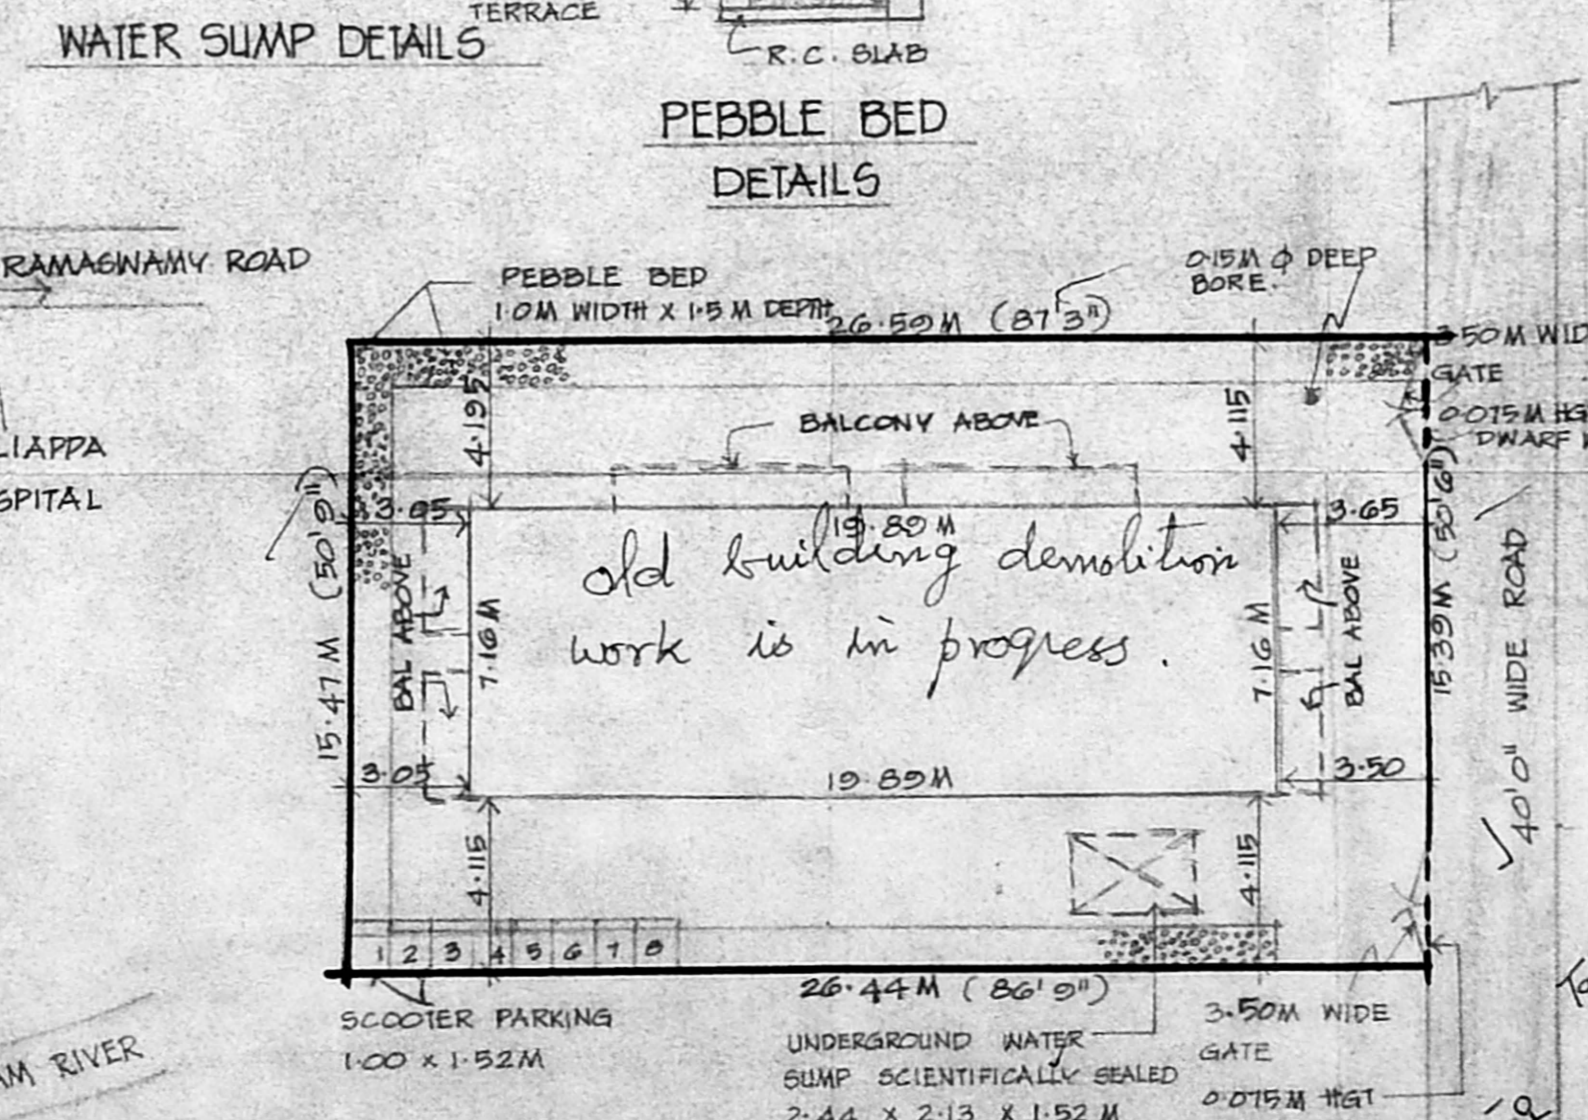 TERRACE
WATER SUMP DETAILS
R.C. SLAB
PEBBLE BED
DETAILS
RAMASWAMY ROAD
PEBBLE BED
1.0M WIDTH X 1.5 M DEPTH
26.59M (87'3")
0.15M Φ DEEP
BORE.
3.50M WID
GATE
0.075M HGT
DWARF
LIAPPA
SPITAL
4.195
BALCONY ABOVE
4.115
3.05
19.89M
3.65
old building demolition
work is in progress.
15.47M (50'9")
BAL ABOVE
7.16M
7.16 M
BAL ABOVE
15.39M (50'6")
40'0" WIDE ROAD
3.05
19.89M
3.50
4.115
4.115
1 2 3 4 5 6 7 8
26.44M (86'9")
SCOOTER PARKING
1.00 X 1.52M
UNDERGROUND WATER
SUMP SCIENTIFICALLY SEALED
2.44 X 2.13 X 1.52 M
3.50M WIDE
GATE
0.075M HGT
AM RIVER